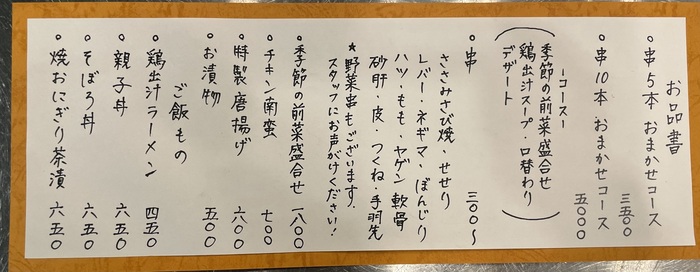 お品書
◦串5本 おまかせコース
三五〇〇
◦串10本 おまかせコース
五〇〇〇
-コース-
季節の前菜盛合せ
鶏出汁スープ・口替わり
デザート
◦串 三〇〇〜
ささみさび焼・せせり
レバー・ネギマ・ぼんじり
ハツ・もも・ヤゲン軟骨
砂肝・皮・つくね・手羽先
★野菜串もございます。
スタッフにお声がけください!
◦季節の前菜盛合せ 一八〇〇
◦チキン南蛮 七〇〇
◦特製唐揚げ 六〇〇
◦お漬物 五〇〇
ご飯もの
◦鶏出汁ラーメン 四五〇
◦親子丼 六五〇
◦そぼろ丼 六五〇
◦焼おにぎり茶漬 六五〇